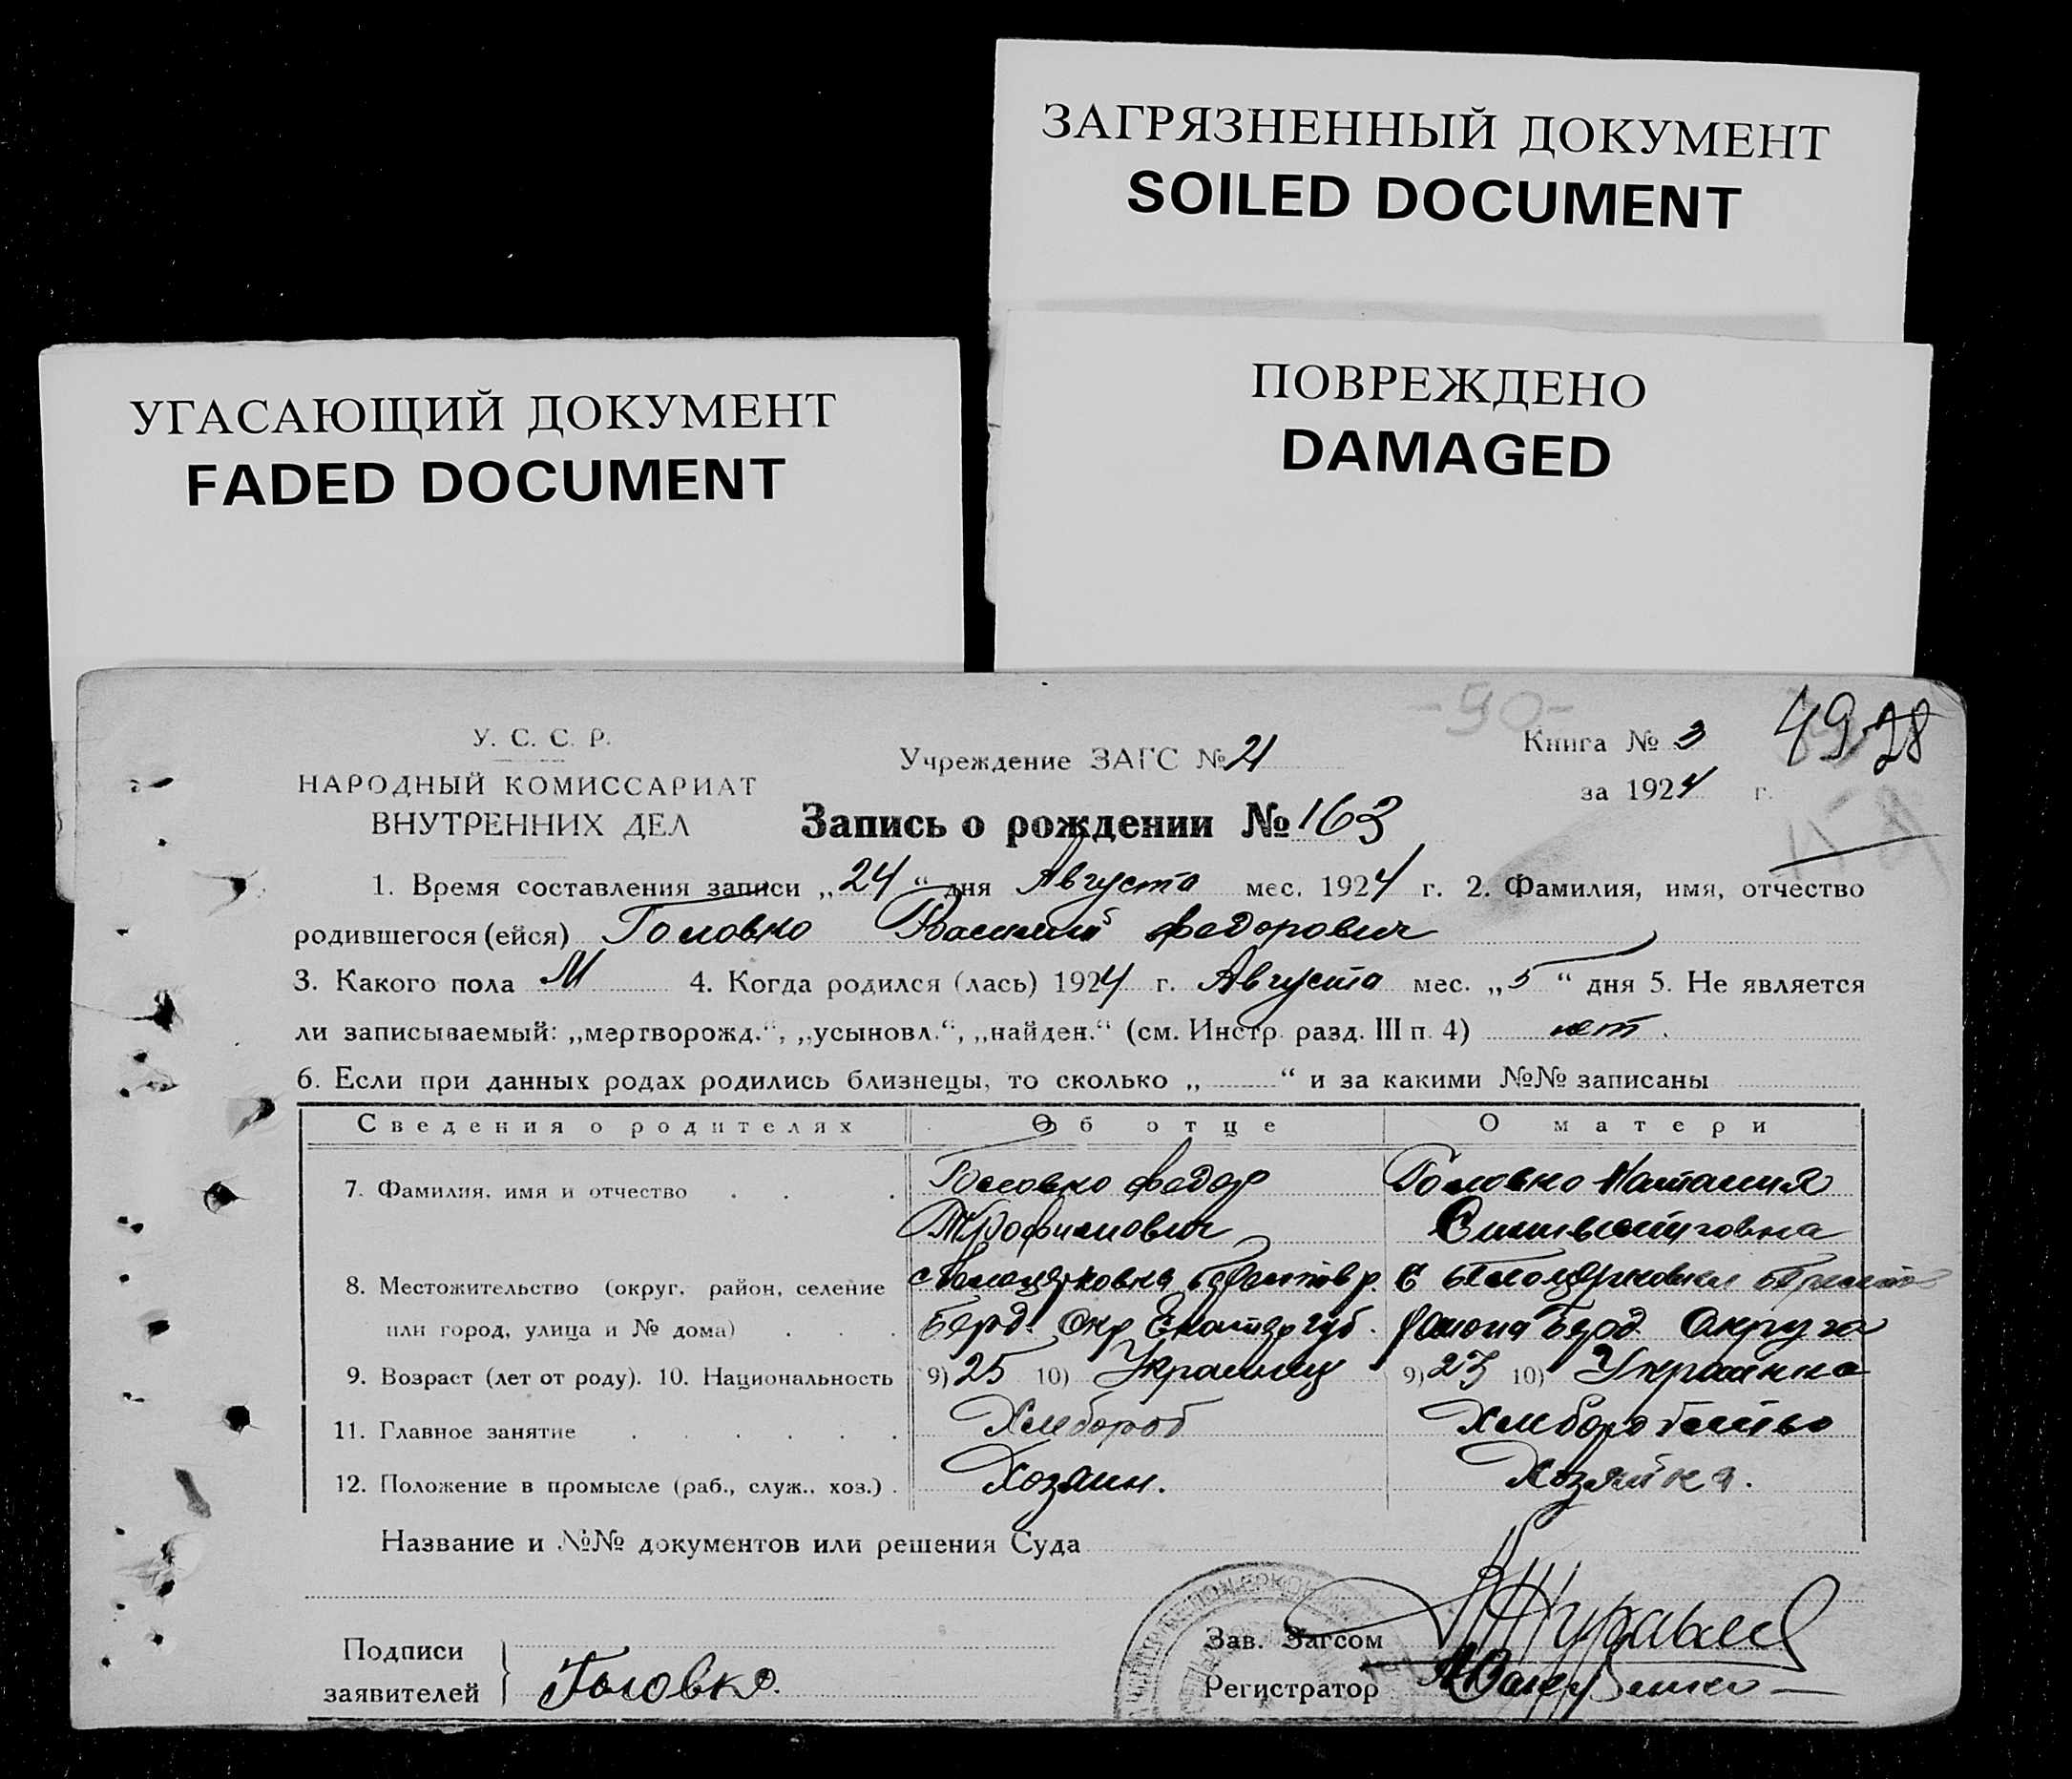 ЗАГРЯЗНЕННЫЙ ДОКУМЕНТ
SOILED DOCUMENT
УГАСАЮЩИЙ ДОКУМЕНТ
FADED DOCUMENT
ПОВРЕЖДЕНО
DAMAGED
-90-
У. С. С. Р.
НАРОДНЫЙ КОМИССАРИАТ
ВНУТРЕННИХ ДЕЛ
Учреждение ЗАГС № 21
Книга № 3
за 1924 г.
49 28
Запись о рождении № 163
1. Время составления записи „24“ дня Августа мес. 1924 г. 2. Фамилия, имя, отчество
родившегося (ейся) Головко Василий Федорович
3. Какого пола М 4. Когда родился (лась) 1924 г. Августа мес. „5“ дня 5. Не является
ли записываемый: „мертворожд.“, „усыновл.“, „найден.“ (см. Инстр. разд. III п. 4) нет.
6. Если при данных родах родились близнецы, то сколько „ “ и за какими №№ записаны
Сведения о родителях Об отце О матери
7. Фамилия, имя и отчество Головко Федор Головко Наталия
Трофимович Сильвестровна
8. Местожительство (округ, район, селение
или город, улица и № дома) Берд. Окр Екатер губ. района Берд Округа
9. Возраст (лет от роду). 10. Национальность 9) 25 10) Украинец 9) 23 10) Украинка
11. Главное занятие Хлебороб Хлеборобство
12. Положение в промысле (раб., служ., хоз.) Хозяин. Хозяйка.
Название и №№ документов или решения Суда
Подписи
заявителей Головко.
Зав. Загсом Журавлев
Регистратор